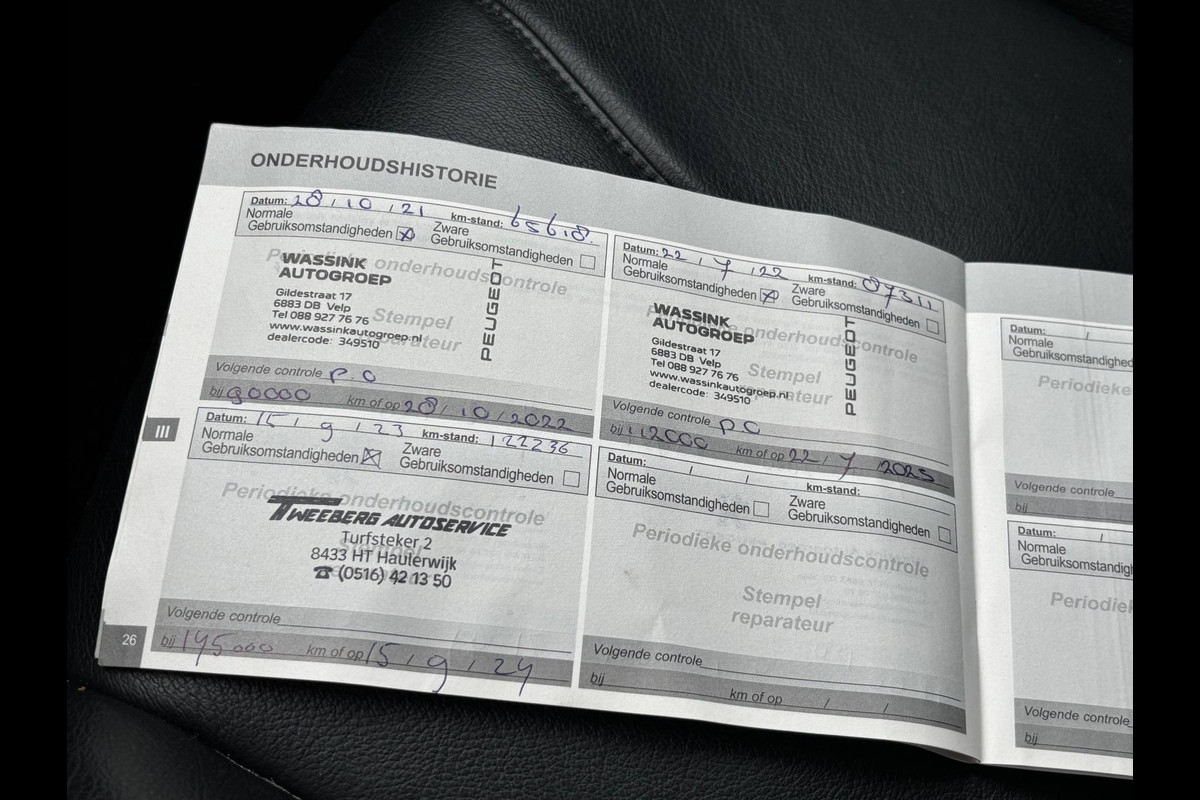 ONDERHOUDSHISTORIE
Datum: 28 / 10 / 21 km-stand: 65618.
Normale Gebruiksomstandigheden Zware Gebruiksomstandigheden
Periodieke onderhoudscontrole
WASSINK
AUTOGROEP
Gildestraat 17
6883 DB Velp
Tel 088 927 76 76
www.wassinkautogroep.nl
dealercode: 349510
PEUGEOT
Stempel
reparateur
Volgende controle P.O
bij 90000 km of op 28 / 10 / 2022
Datum: 22 / 7 / 22 km-stand: 87311
Normale Gebruiksomstandigheden Zware Gebruiksomstandigheden
Periodieke onderhoudscontrole
WASSINK
AUTOGROEP
Gildestraat 17
6883 DB Velp
Tel 088 927 76 76
www.wassinkautogroep.nl
dealercode: 349510
PEUGEOT
Stempel
reparateur
Volgende controle PO
bij 112000 km of op 22 / 7 / 2023
III
Datum: 15 / 9 / 23 km-stand: 122236
Normale Gebruiksomstandigheden Zware Gebruiksomstandigheden
Periodieke onderhoudscontrole
TWEEBERG AUTOSERVICE
Turfsteker 2
8433 HT Haulerwijk
☎ (0516) 42 13 50
Volgende controle
bij 145000 km of op 15 / 9 / 24
Datum: / / km-stand:
Normale Gebruiksomstandigheden Zware Gebruiksomstandigheden
Periodieke onderhoudscontrole
Stempel
reparateur
Volgende controle
bij km of op / /
26
Datum: /
Normale
Gebruiksomstandighed
Periodieke
Volgende controle
bij
Datum: /
Normale
Gebruiksomstandighed
Periodie
Volgende controle
bij